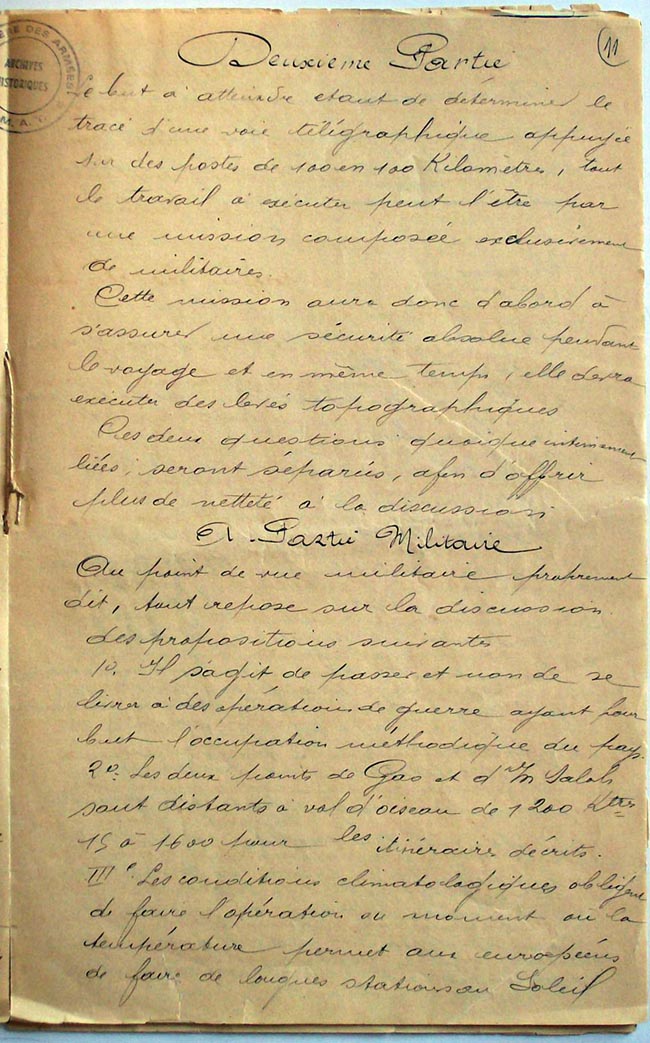 11
DES ARMÉES
ARCHIVES
HISTORIQUES
M.A.T.
Deuxième Partie
Le but à atteindre étant de déterminer le
tracé d'une voie télégraphique appuyée
sur des postes de 100 en 100 Kilomètres, tout
le travail à exécuter peut l'être par
une mission composée exclusivement
de militaires.
Cette mission aura donc d'abord à
s'assurer une sécurité absolue pendant
le voyage et en même temps, elle devra
exécuter des levés topographiques
Ces deux questions quoique intimement
liées, seront séparées, afin d'offrir
plus de netteté à la discussion
A - Partie Militaire
Au point de vue militaire proprement
dit, tout repose sur la discussion
des propositions suivantes
1º. Il s'agit de passer et non de se
livrer à des opérations de guerre ayant pour
but l'occupation méthodique du pays.
2º. Les deux points de Gao et d'In Salah
sont distants à vol d'oiseau de 1200 Ktres
15 à 1600 pour les itinéraires décrits.
IIIº. Les conditions climatologiques obligent
de faire l'opération au moment où la
température permet aux européens
de faire de longues stations au Soleil